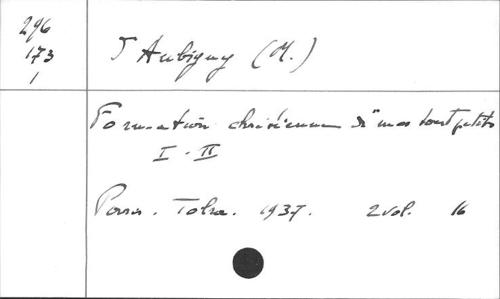 296
173
1
D'Aubigny (M.)
Formation chrétienne de mes tout petits
I - II
Paris. Tolra. 1937. 2 vol. 16